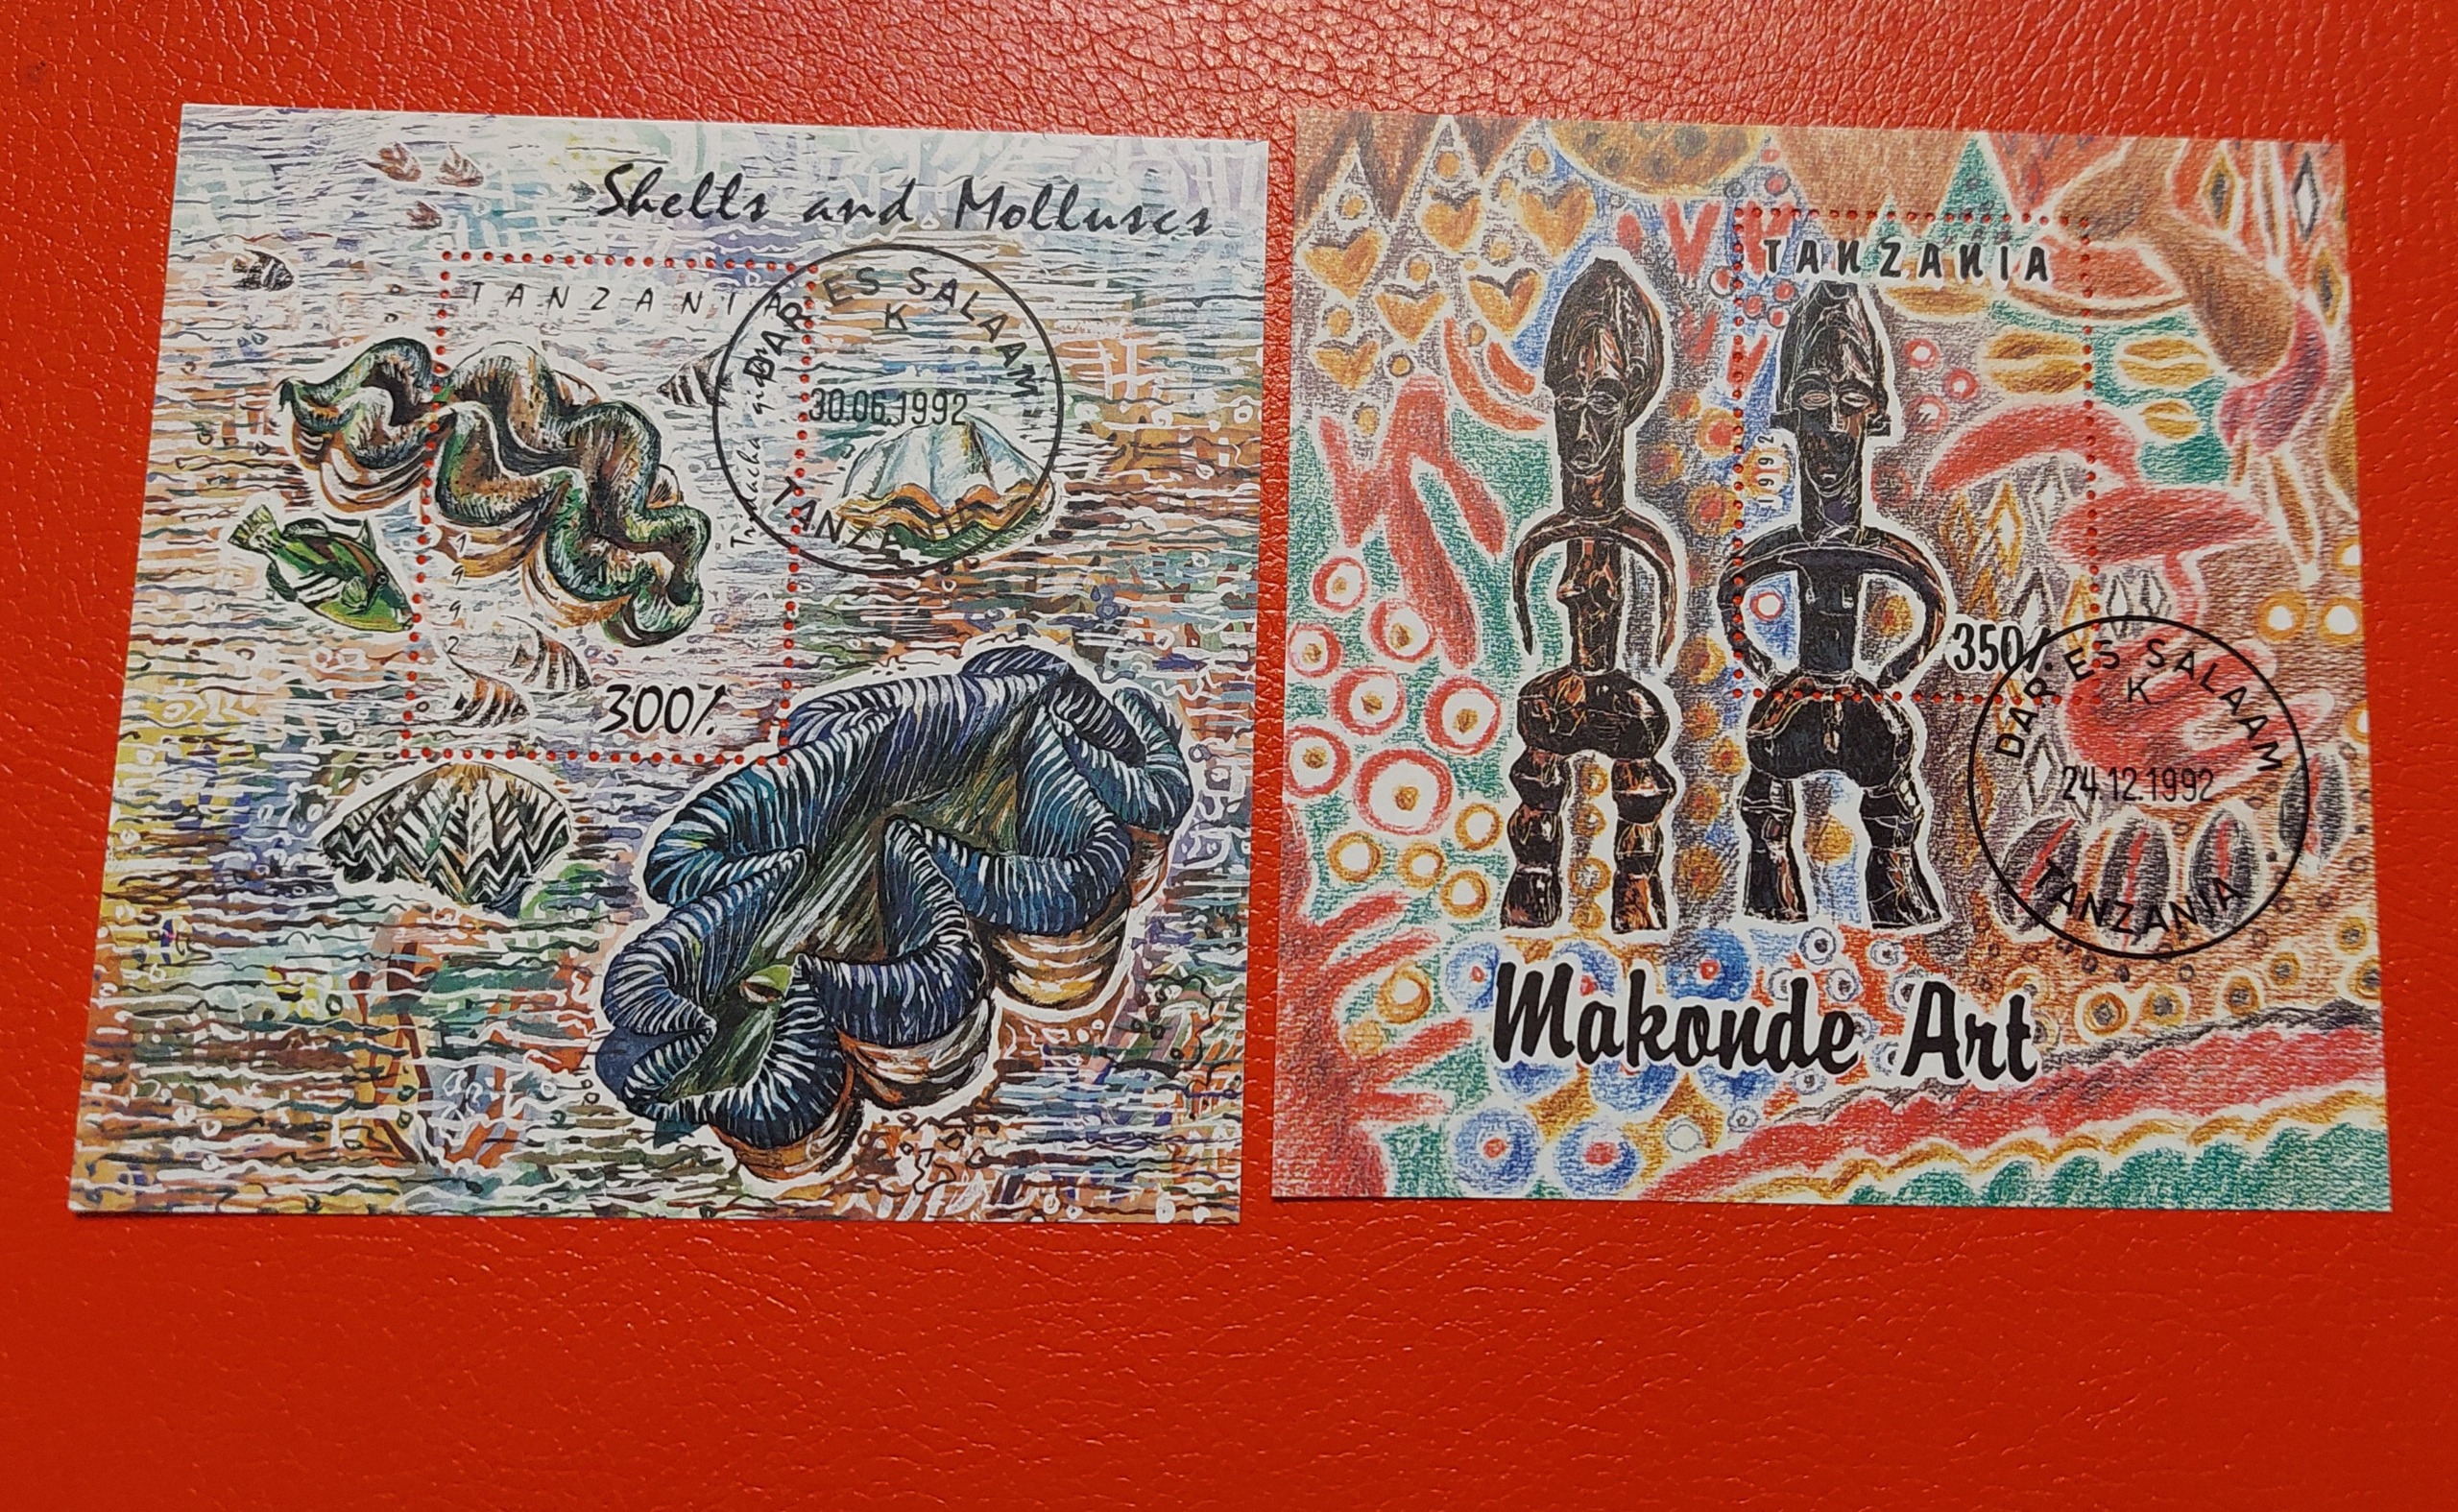 Shells and Molluscs
TANZANIA
DAR ES SALAAM
K
30.06.1992
TANZANIA
1992
300/.
TANZANIA
1992
350/.
DAR ES SALAAM
K
24.12.1992
TANZANIA
Makonde Art